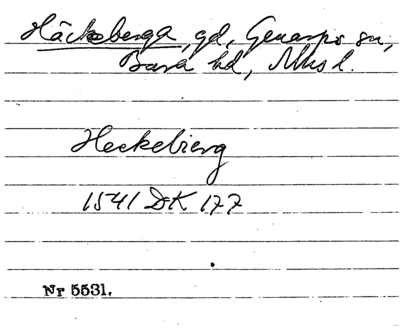 Häckeberga, gd, Genarps sn,
Bara hd, Mhs l.
Heckebierg
1541 DK 177
Nr 5531.